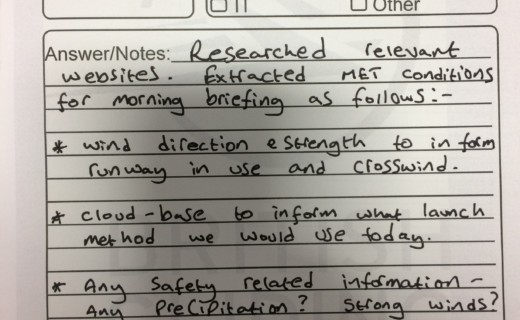 Other
Answer/Notes: Researched relevant
websites. Extracted MET conditions
for morning briefing as follows:-
* wind direction & strength to inform
runway in use and crosswind.
* cloud-base to inform what launch
method we would use today.
* Any safety related information -
Any precipitation? Strong winds?